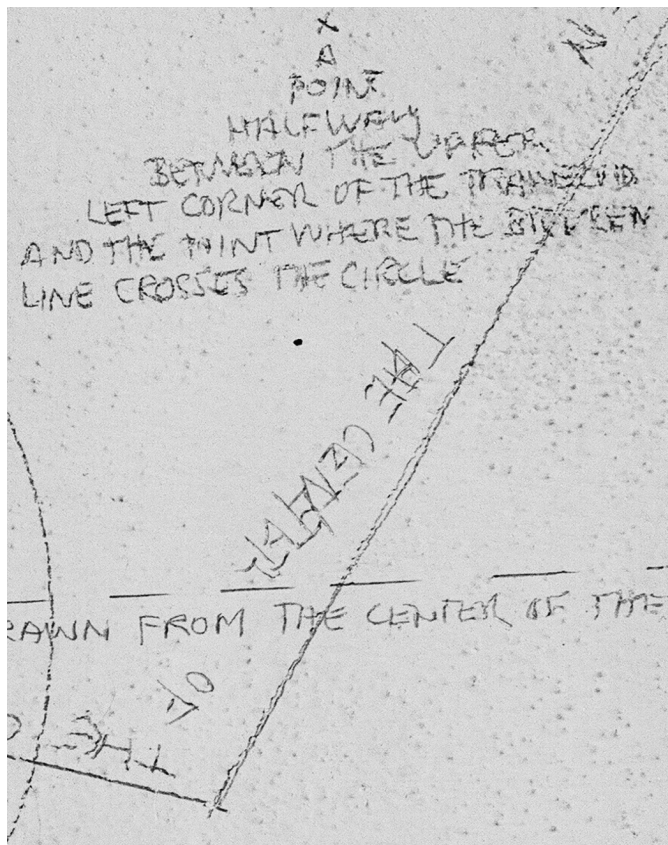 X
A
POINT
HALFWAY
BETWEEN THE UPPER
LEFT CORNER OF THE TRAPEZOID
AND THE POINT WHERE THE BROKEN
LINE CROSSES THE CIRCLE
THE CENTER
RAWN FROM THE CENTER OF THE
TO
THE